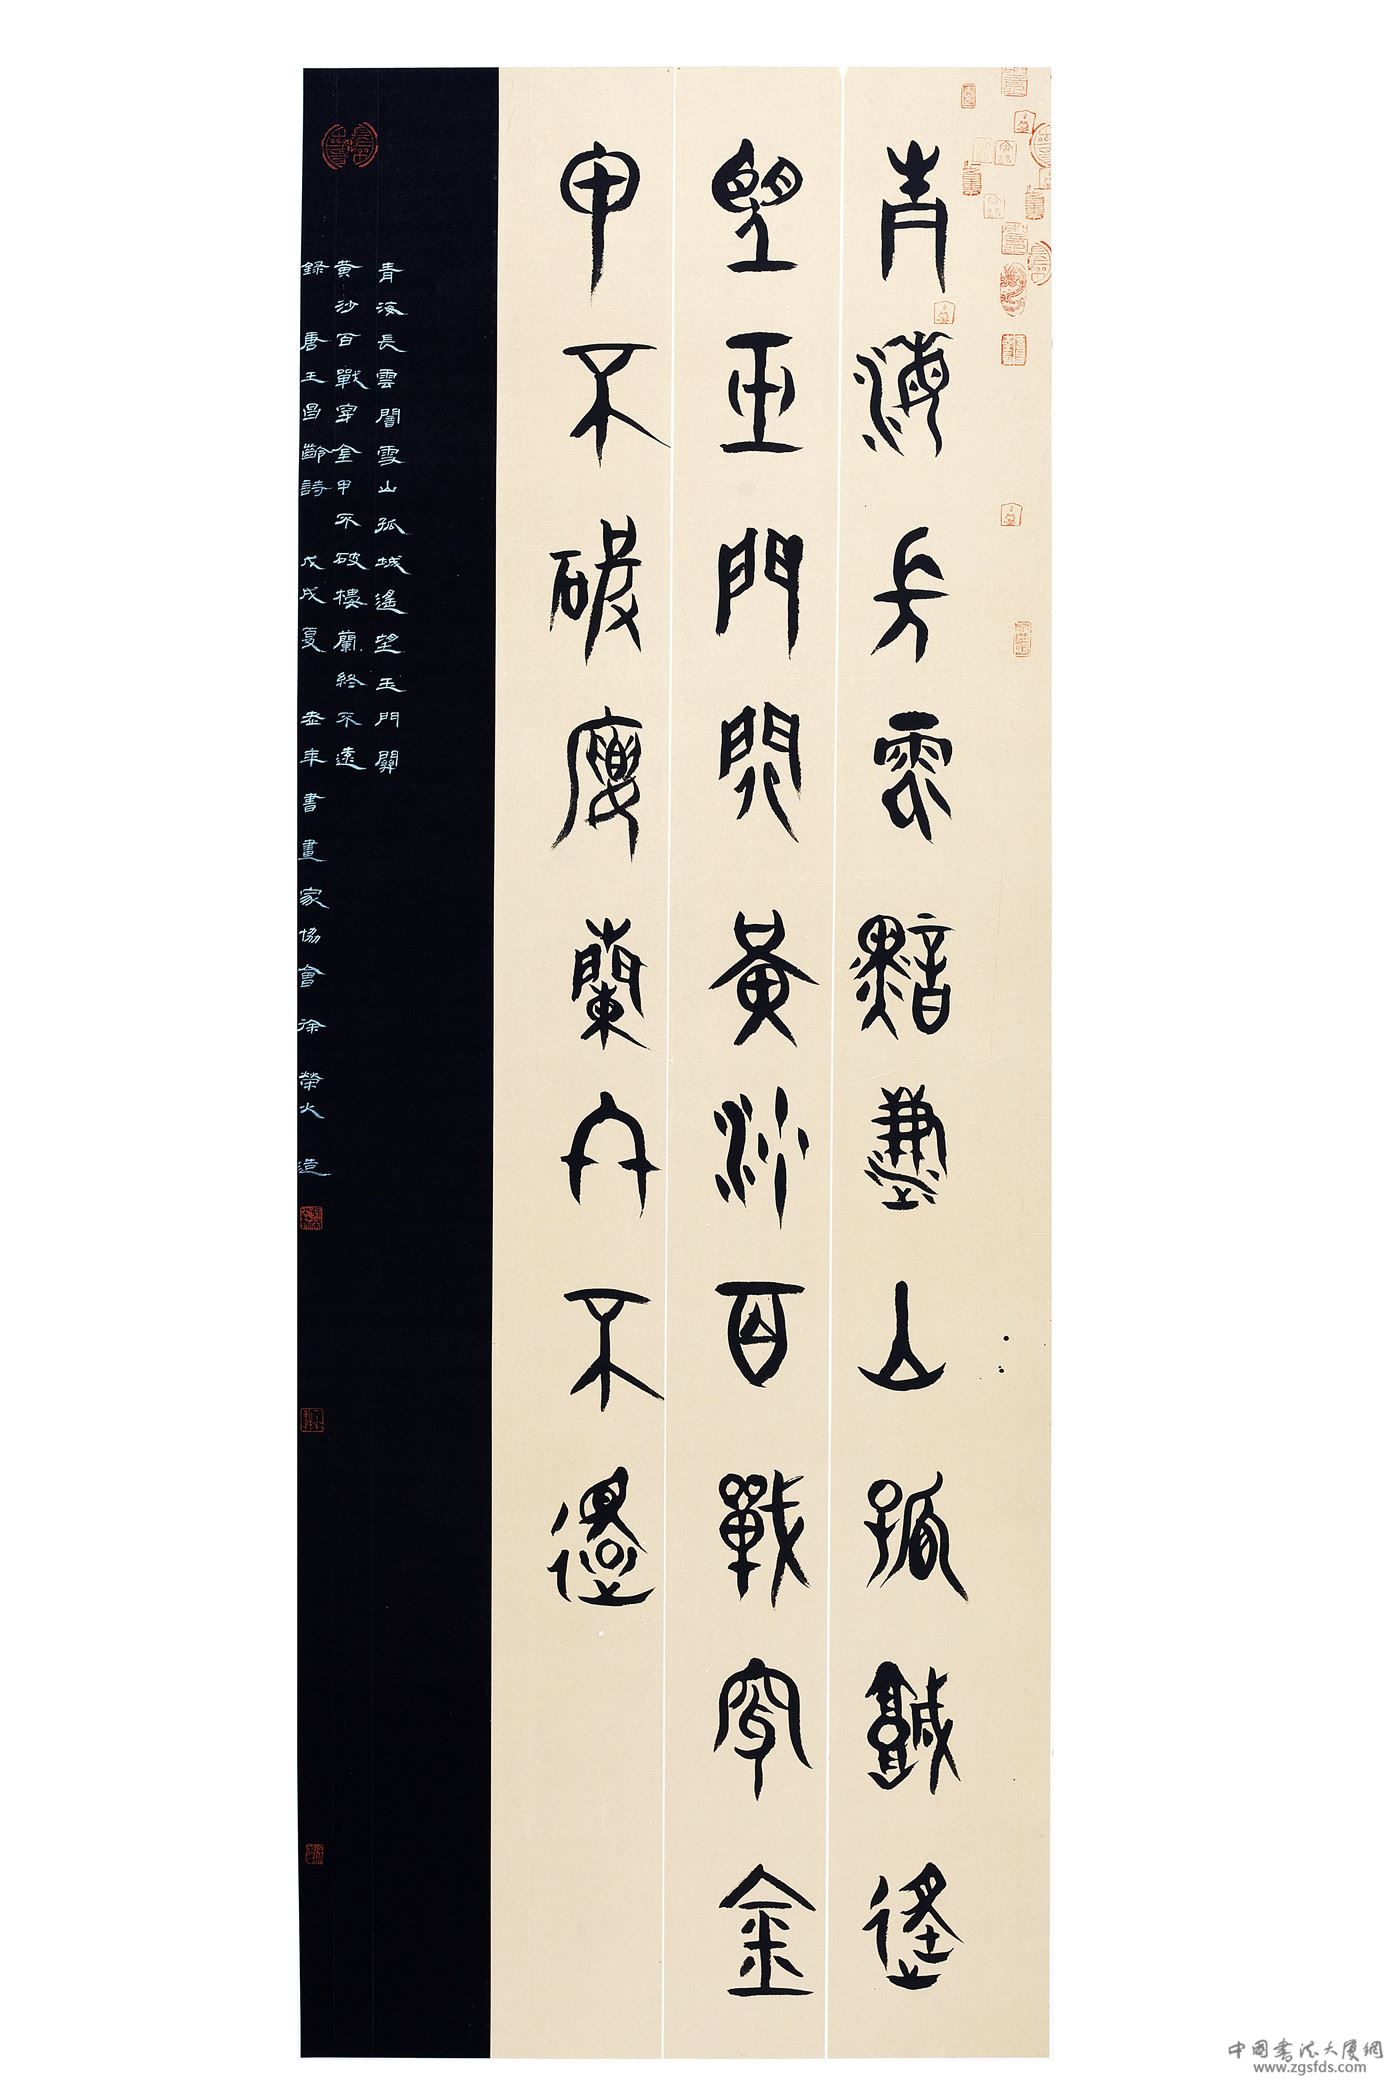 青海長雲黯雪山孤城遙
望玉門關黃沙百戰穿金
甲不破樓蘭終不還
青海長雲闇雪山孤城遙望玉門關
黃沙百戰穿金甲不破樓蘭終不還
錄 唐王昌齡詩 戊戌夏 年書畫家協會 徐榮火 造
中国書法大厦網
www.zgsfds.com